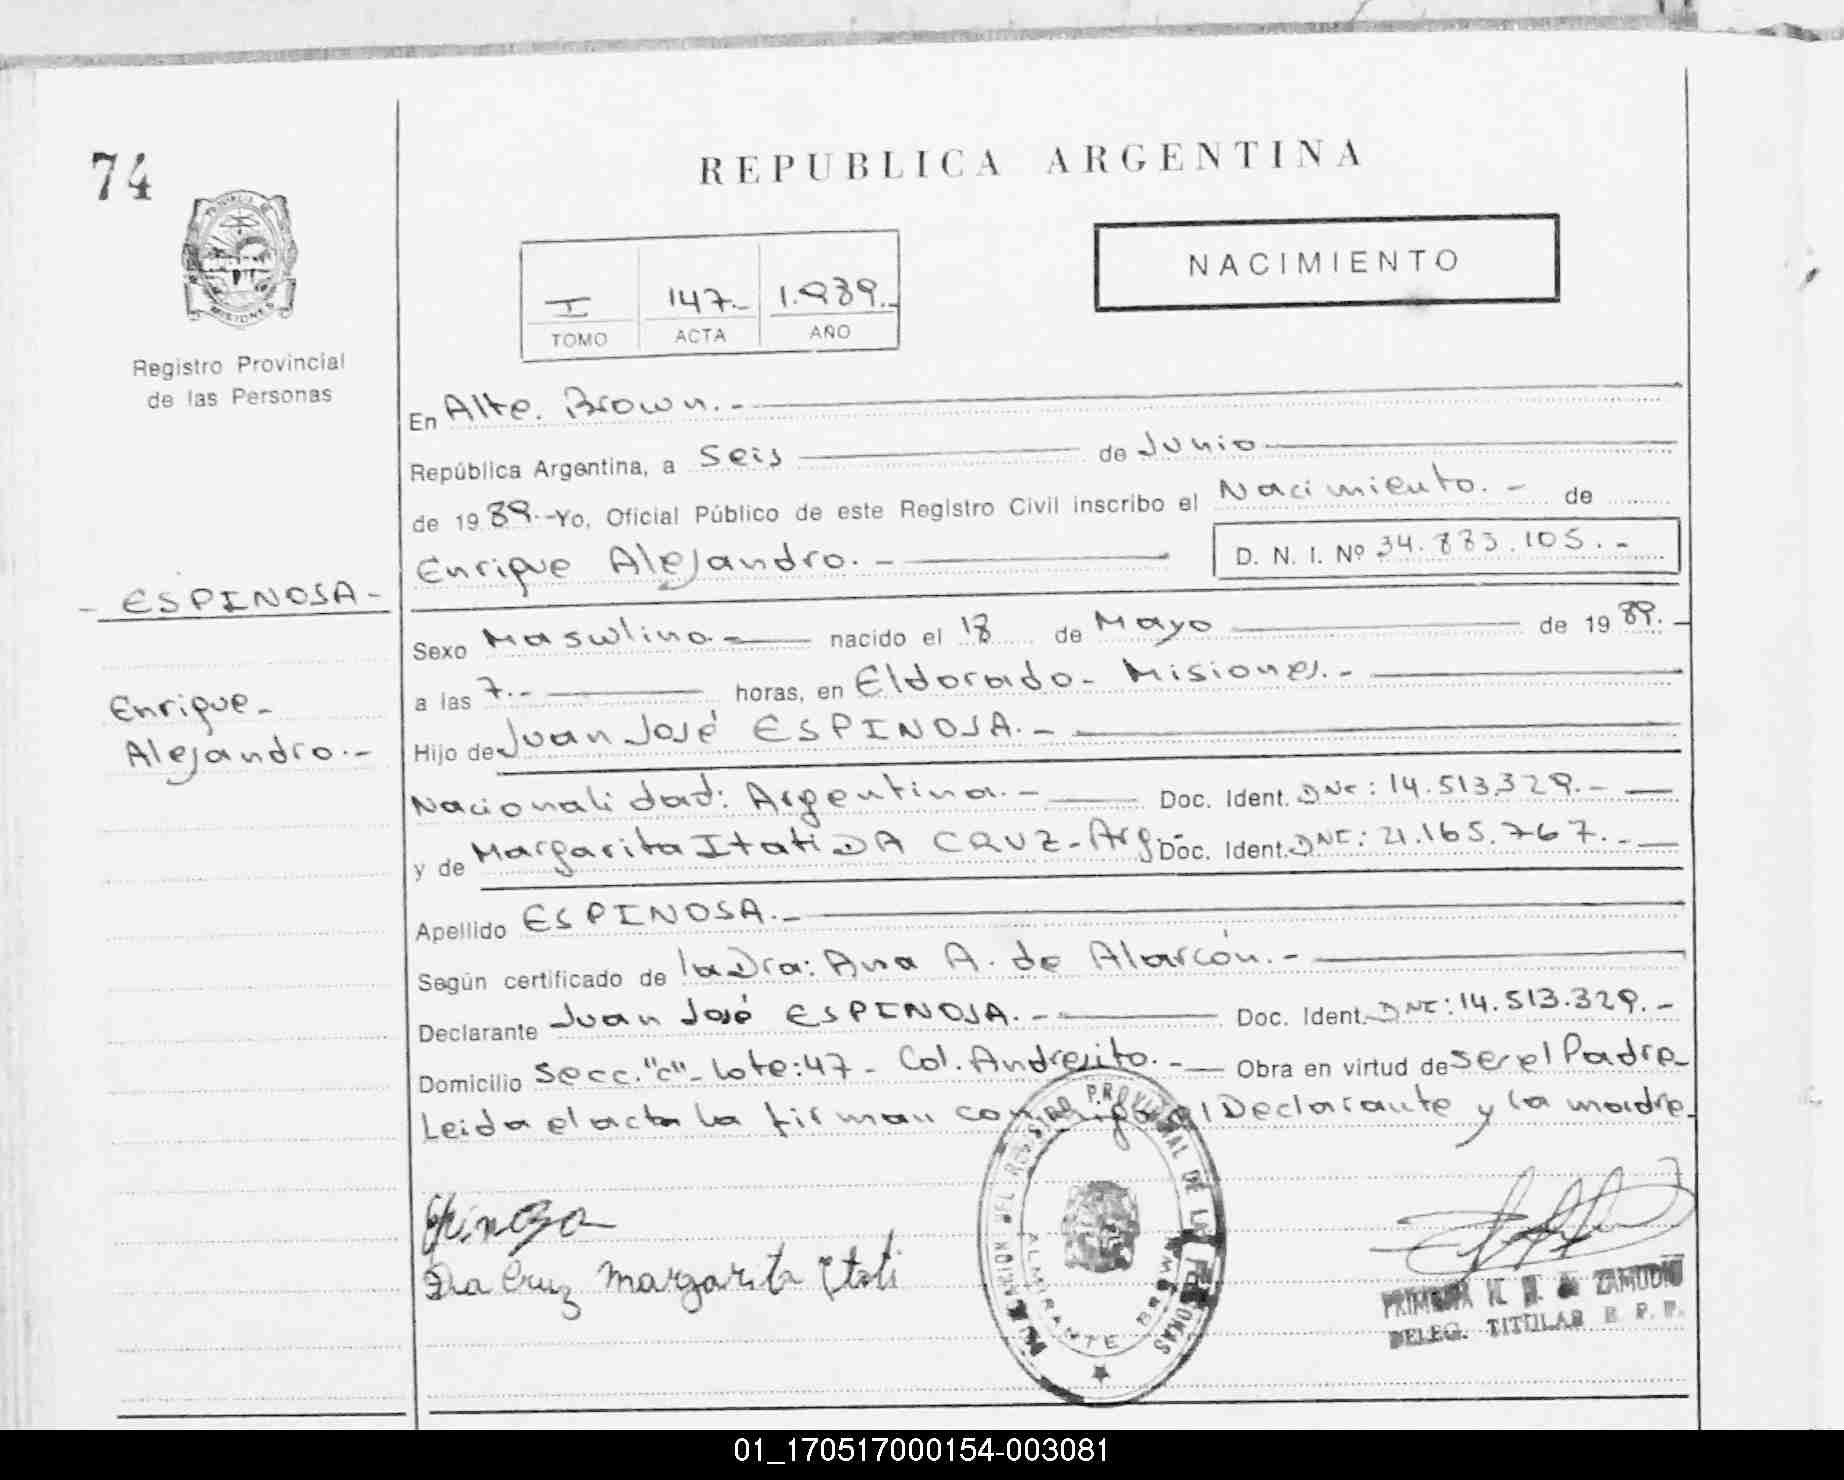 74
REPUBLICA ARGENTINA
PROVINCIA DE
MISIONES
Registro Provincial
de las Personas
I 147.- 1.989.-
TOMO ACTA AÑO
NACIMIENTO
En Alte. Brown.-
República Argentina, a Seis de Junio
de 19 89.- Yo, Oficial Público de este Registro Civil inscribo el Nacimiento.- de
Enrique Alejandro.- D. N. I. Nº 34.883.105.-
- ESPINOSA -
Enrique -
Alejandro.-
Sexo Masculino.- nacido el 18 de Mayo de 19 89.-
a las 7.- horas, en Eldorado - Misiones.-
Hijo de Juan José ESPINOSA.-
Nacionalidad: Argentina.- Doc. Ident. DNI: 14.513.329.-
y de Margarita Itati DA CRUZ - Arg.- Doc. Ident. DNI: 21.165.767.-
Apellido ESPINOSA.-
Según certificado de la Dra: Ana A. de Alarcón.-
Declarante Juan José ESPINOSA.- Doc. Ident. DNI: 14.513.329.-
Domicilio Secc. "C" - Lote: 47 - Col. Andresito.- Obra en virtud de ser el Padre -
Leida el acta la firman conmigo el Declarante y la madre.
Espinoza
Da Cruz Margarita Itati
DEL REGISTRO PROVINCIAL DE LAS PERSONAS
ALMIRANTE BROWN
ZAMUDIO
DELEG. TITULAR R. P. P.
01_170517000154-003081